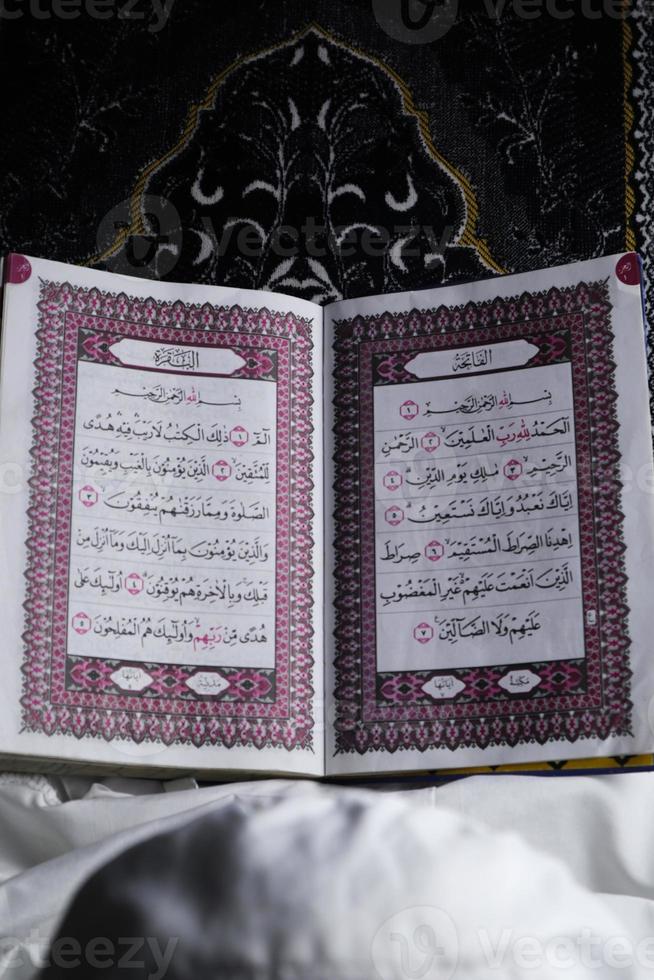 الفَاتِحَة
بِسْمِ اللّٰهِ الرَّحْمٰنِ الرَّحِيْمِ ١
اَلْحَمْدُ لِلّٰهِ رَبِّ الْعٰلَمِيْنَۙ ٢ الرَّحْمٰنِ
الرَّحِيْمِۙ ٣ مٰلِكِ يَوْمِ الدِّيْنِۗ ٤
اِيَّاكَ نَعْبُدُ وَاِيَّاكَ نَسْتَعِيْنُۗ ٥
اِهْدِنَا الصِّرَاطَ الْمُسْتَقِيْمَۙ ٦ صِرَاطَ
الَّذِيْنَ اَنْعَمْتَ عَلَيْهِمْ ەۙ غَيْرِ الْمَغْضُوْبِ
عَلَيْهِمْ وَلَا الضَّاۤلِّيْنَ ٧
مَكِّيَّة
اٰيَاتُهَا ٧
البَقَرَة
بِسْمِ اللّٰهِ الرَّحْمٰنِ الرَّحِيْمِ
الۤمّۤ ۚ ١ ذٰلِكَ الْكِتٰبُ لَا رَيْبَۛ فِيْهِۛ هُدًى
لِّلْمُتَّقِيْنَۙ ٢ الَّذِيْنَ يُؤْمِنُوْنَ بِالْغَيْبِ وَيُقِيْمُوْنَ
الصَّلٰوةَ وَمِمَّا رَزَقْنٰهُمْ يُنْفِقُوْنَۙ ٣
وَالَّذِيْنَ يُؤْمِنُوْنَ بِمَآ اُنْزِلَ اِلَيْكَ وَمَآ اُنْزِلَ مِنْ
قَبْلِكَۚ وَبِالْاٰخِرَةِ هُمْ يُوْقِنُوْنَۗ ٤ اُولٰۤىِٕكَ عَلٰى
هُدًى مِّنْ رَّبِّهِمْۙ وَاُولٰۤىِٕكَ هُمُ الْمُفْلِحُوْنَ ٥
مَدَنِيَّة
اٰيَاتُهَا